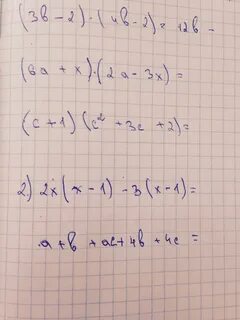 (3b-2)·(4b-2)=12b-
(6a+x)·(2a-3x)=
(c+1)(c²+3c+2)=
2) 2x(x-1)-3(x-1)=
a+b+ac+4b+4c=